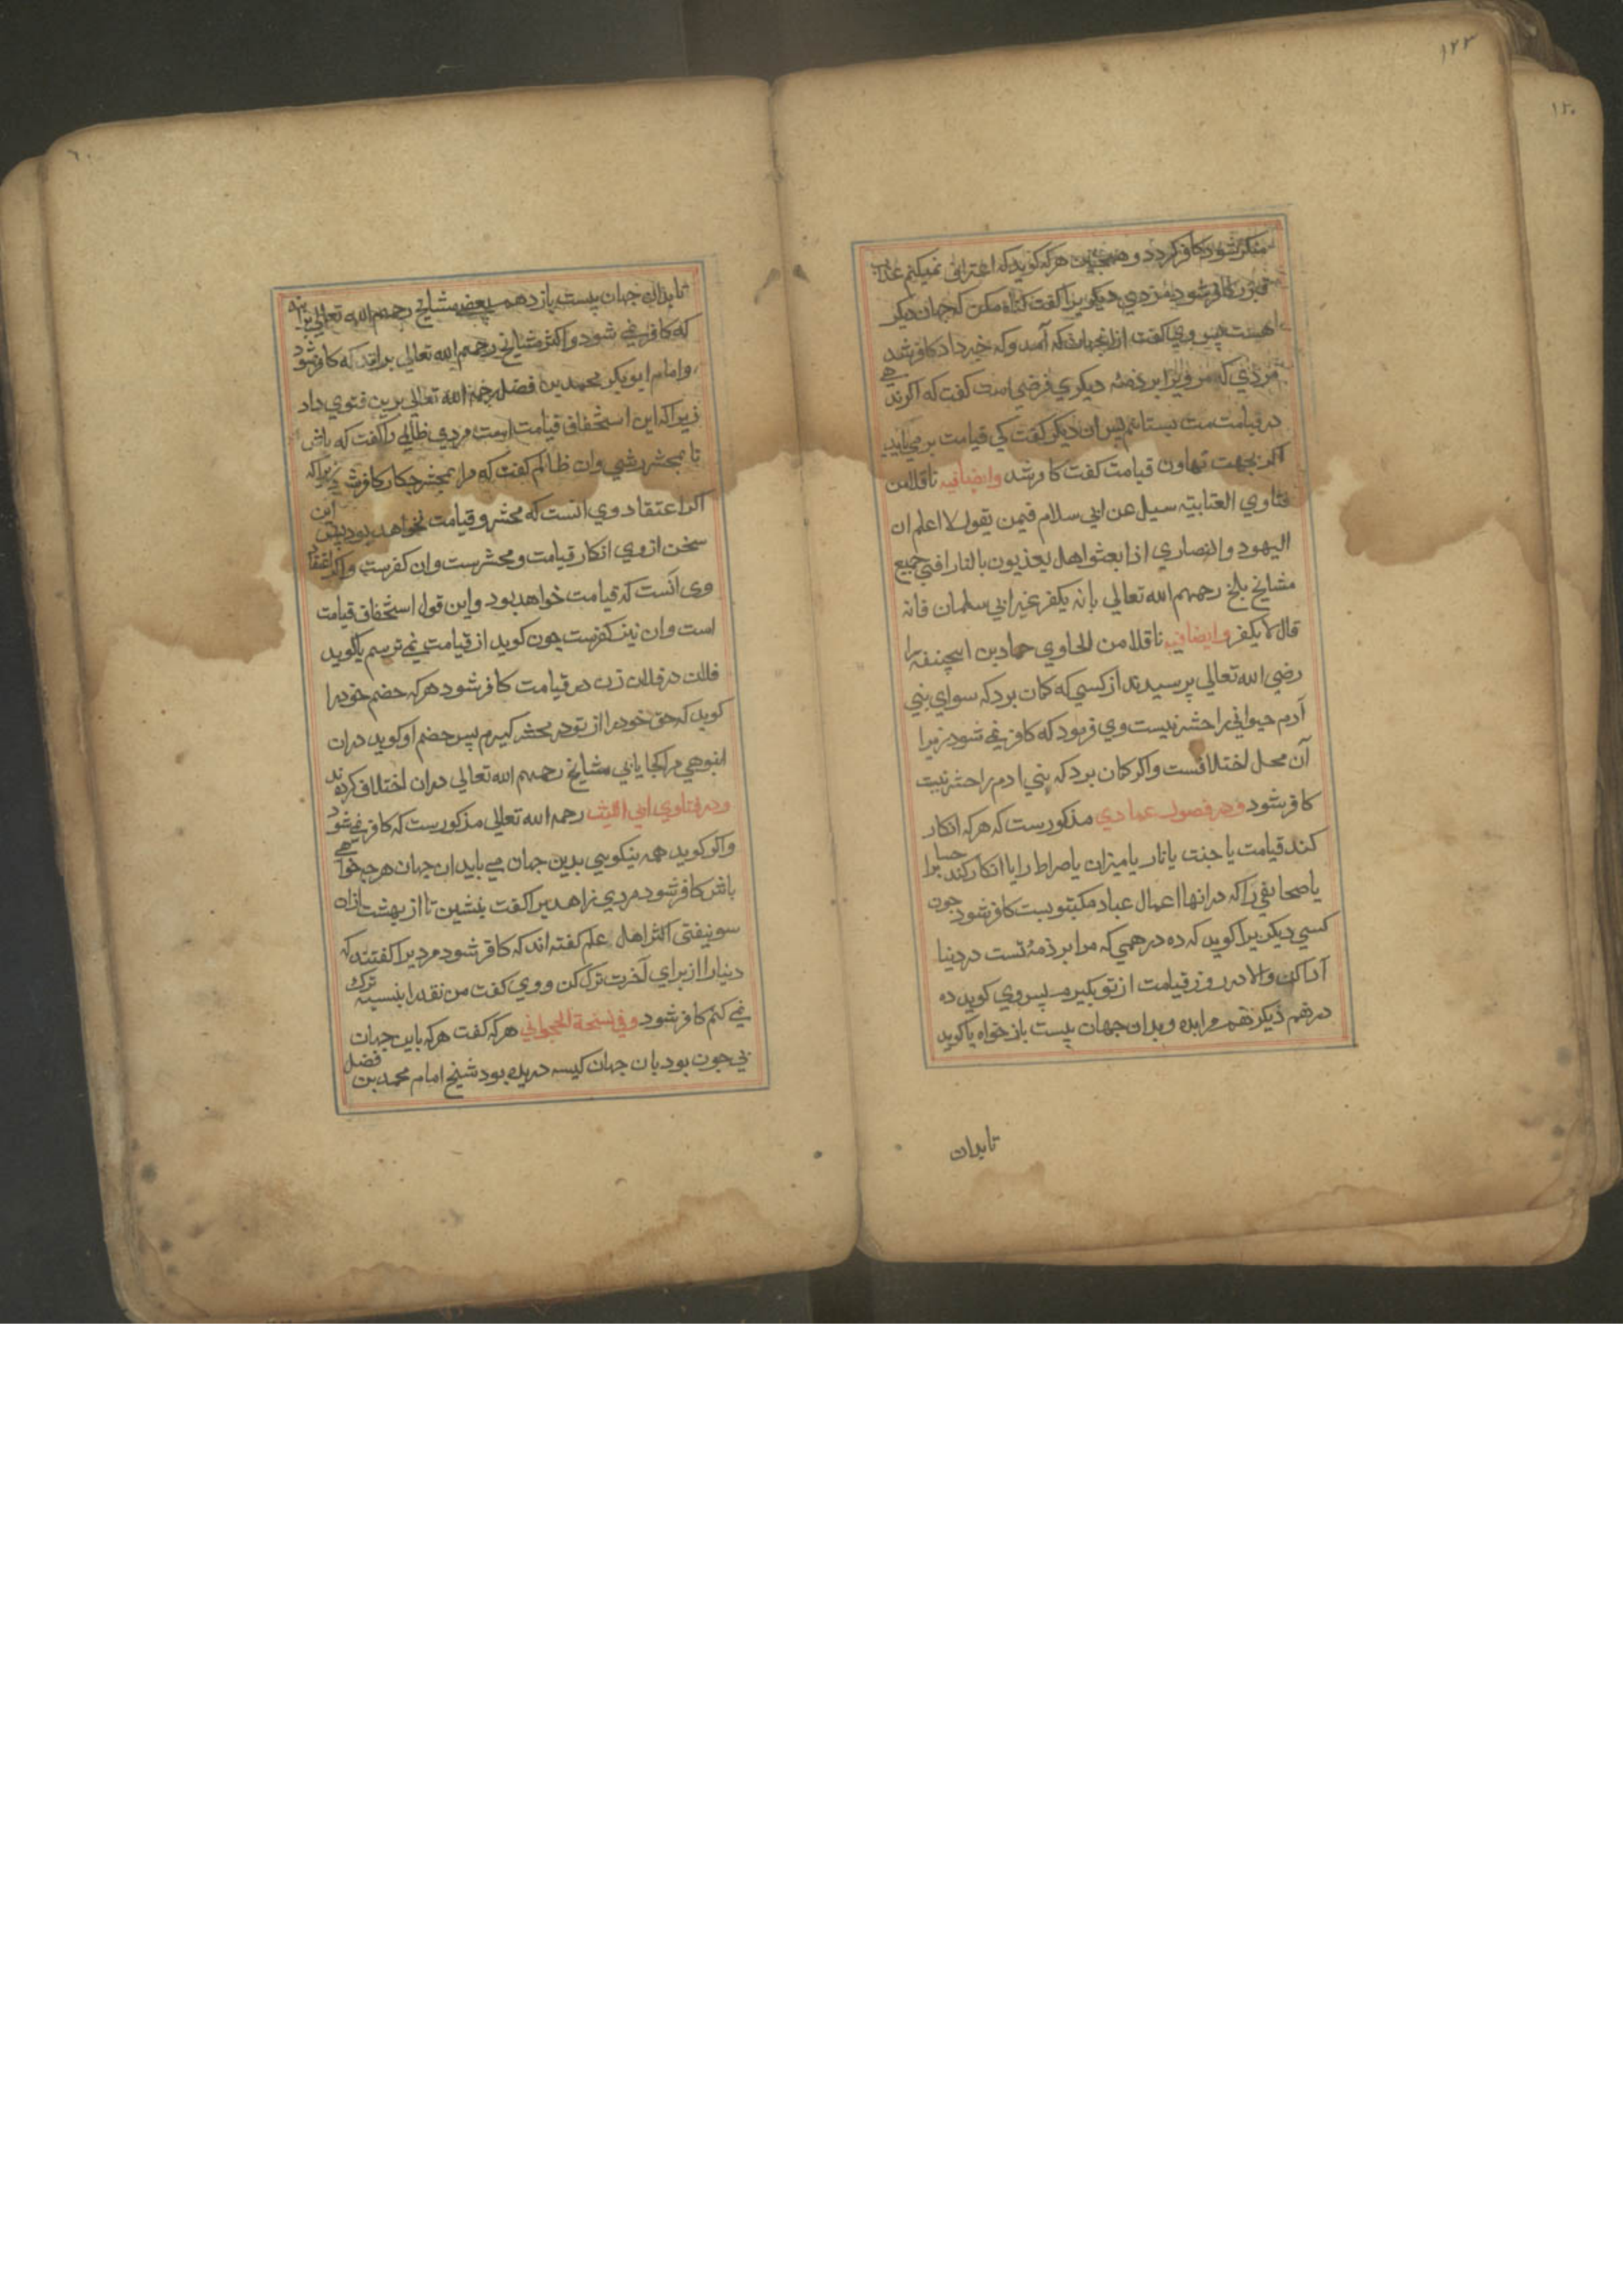 ١٢٣
١٢٠
منکر شود کافر کردد و همچنین هرکه کوید که اعتراف نمیکنم عذاب
قبور کافر شود مردی دیکریرا کفت کناه مکن که جهان دیکر
هست پس وی کفت ازان جهان که آمد و که خبر داد کافر شد
مردی که مر ویرا بر ذمهٔ دیکری قرضی است کفت که اکر ندهی
در قیامت بستانم پس ان دیکر کفت کی قیامت بر می آید
اکر بجهت تهاون قیامت کفت کافر شد وایضا فیه ناقلا من
فتاوی العتابیة سیل عن ابی سلام فیمن یقول لا اعلم ان
الیهود والنصاری اذا بعثوا هل یعذبون بالنار افتی جمیع
مشایخ بلخ رحمهم الله تعالی بانه یکفر غیر ابی سلمان فانه
قال لا یکفر وایضا فیه ناقلا من الحاوی حماد بن ابیحنفه را
رضی الله تعالی پرسیدند از کسی که کمان برد که سوای بنی
آدم حیوانی را حشر نیست وی فرمود که کافر نمی شود زیرا
آن محل اختلافست واکر کمان برد که بنی ادم را حشر نیست
کافر شود ودر فصول عمادی مذکورست که هرکه انکار
کند قیامت یا جنت یا نار یا میزان یا صراط را یا انکار کند حساب را
یا صحایفی را که درانها اعمال عباد مکتوبست کافر شود چون
کسی دیکریرا کوید که ده درهمی که مرا بر ذمه تست در دنیا
ادا کن والا در روز قیامت از تو بکیرم پس وی کوید ده
درهم دیکر هم مرا بده و بدان جهان بیست باز خواه یا کوید
تا بدان
تا بدان جهان بیست باز دهم بعضی مشایخ رحمهم الله تعالی برانند
که کافر نمی شود و اکثر مشایخ رحمهم الله تعالی برانند که کافر شود
وامام ابو بکر محمد بن فضل رحمه الله تعالی برین فتوی داد
زیرا که این استخفاف قیامت است مردی ظالمی را کفت که باش
تا بمحشر رسی وان ظالم کفت که مرا بمحشر چکار کافر شد زیراکه
اکر اعتقاد وی انست که محشر و قیامت نخواهد بود پس این
سخن از وی انکار قیامت و محشرست وان کفرست واکر اعتقاد
وی آنست که قیامت خواهد بود واین قول استخفاف قیامت
است وان نیز کفرست چون کوید از قیامت نمی ترسم یا کوید
فلان در فلان زن در قیامت کافر شود هرکه خصم خود را
کوید که حق خود را از تو در محشر کیرم پس خصم او کوید دران
انبوهی مرا کجا یابی مشایخ رحمهم الله تعالی دران اختلاف کرده اند
ودر فتاوی ابی اللیث رحمه الله تعالی مذکورست که کافر نمی شود
واکر کوید همه نیکویی بدین جهان می باید ان جهان هرچه خواهی
باش کافر شود مردی زاهدیرا کفت بنشین تا از بهشت ازان
سو نیفتی اکثر اهل علم کفته اند که کافر شود مردیرا کفتند که
دنیا را از برای آخرت ترک کن و وی کفت من نقد را بنسیه ترک
نمی کنم کافر شود وفی نسخة الخجوانی هرکه کفت هرکه باین جهان
بی چون بود بان جهان کیسه دریده بود شیخ امام محمد بن فضل